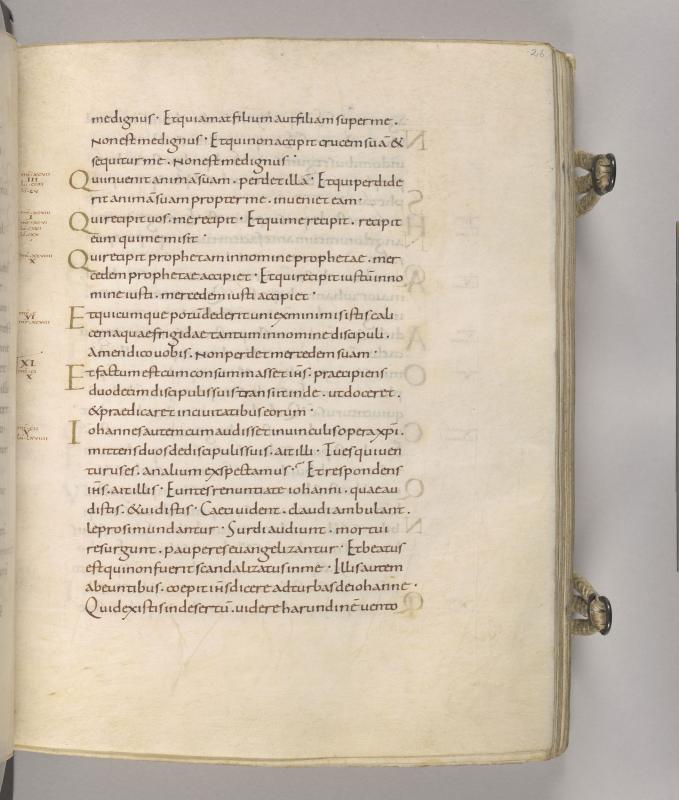 26
me dignus · Et qui amat filium aut filiam super me ·
Non est me dignus · Et qui non accipit crucem suā &
sequitur me · Non est me dignus ·
Qui invenit animā suam · perdet illā · Et qui perdide
rit animā suam propter me · inveniet eam ·
Qui recipit vos · me recipit · Et qui me recipit · recipit
eum qui me misit ·
Qui recipit prophetam in nomine prophetae · mer
cedem prophetae accipiet · Et qui recipit iustū in no
mine iusti · mercedem iusti accipiet ·
Et quicumque potū dederit uni ex minimis istis cali
cem aquae frigidae tantum in nomine discipuli ·
Amen dico vobis · Non perdet mercedem suam ·
XI
X
Et factum est cum consummasset ihs̄ · praecipiens
duodecim discipulis suis transiit inde · ut doceret ·
& praedicaret in civitatibus eorum ·
Iohannes autem cum audisset in vinculis opera xp̄i ·
mittens duos de discipulis suis · ait illi · Tu es qui ven
turus es · an alium exspectamus · Et respondens
ihs̄ · ait illis · Euntes renuntiate iohanni · quae au
distis · & vidistis · Caeci vident · claudi ambulant ·
leprosi mundantur · Surdi audiunt · mortui
resurgunt · pauperes evangelizantur · Et beatus
est qui non fuerit scandalizatus in me · Illis autem
abeuntibus · coepit ihs̄ dicere ad turbas de iohanne ·
Quid existis in desertū · videre harundinē vento